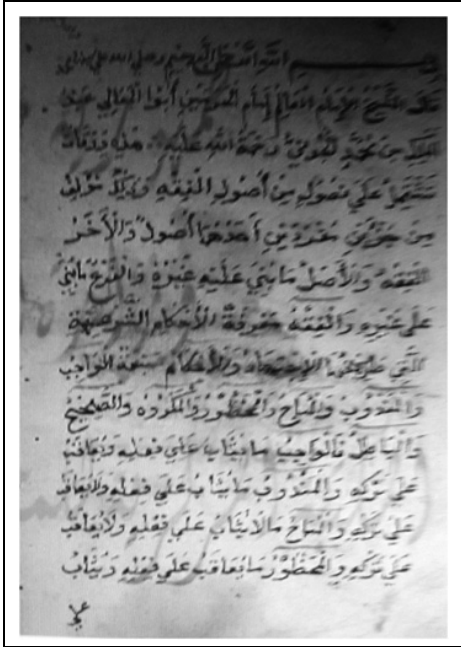 بسم الله الرحمن الرحيم وصلى الله على
قال الشيخ الإمام العالم إمام الحرمين أبوا المعالي عبد
الملك بن محمد الجويني رحمة الله عليه هذه ورقات
تشتمل على فصول من أصول الفقه وذلك مؤلف
من جزئين مفردين أحدهما أصول والآخر
الفقه والأصل ما بني عليه غيره والفرع ما بني
على غيره والفقه معرفة الأحكام الشرعية
التي طريقها الإجتهاد والأحكام سبعة الواجب
والمندوب والمباح والمحظور والمكروه والصحيح
والباطل فالواجب ما يثاب على فعله ويعاقب
على تركه والمندوب ما يثاب على فعله ولا يعاقب
على تركه والمباح ما لا يثاب على فعله ولا يعاقب
على تركه والمحظور ما يعاقب على فعله ويثاب